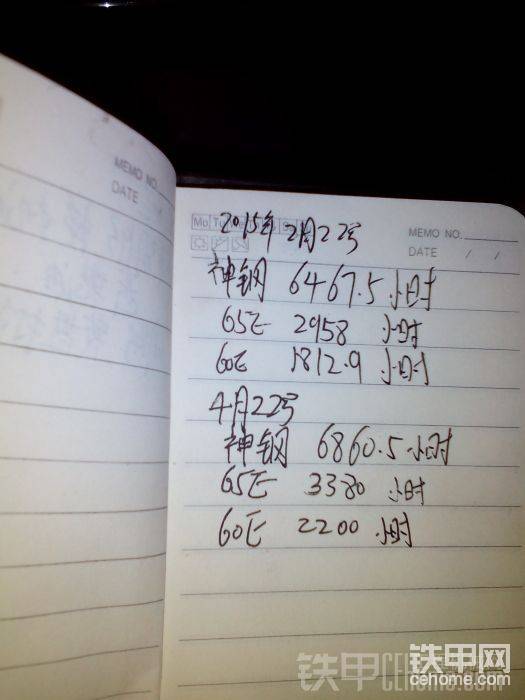 MEMO NO.
DATE
2015年2月22号
MEMO NO.
DATE / /
神钢 6467.5 小时
65E 2958 小时
60E 1812.9 小时
4月22号
神钢 6860.5 小时
65E 3380 小时
60E 2200 小时
铁甲网
cehome.com